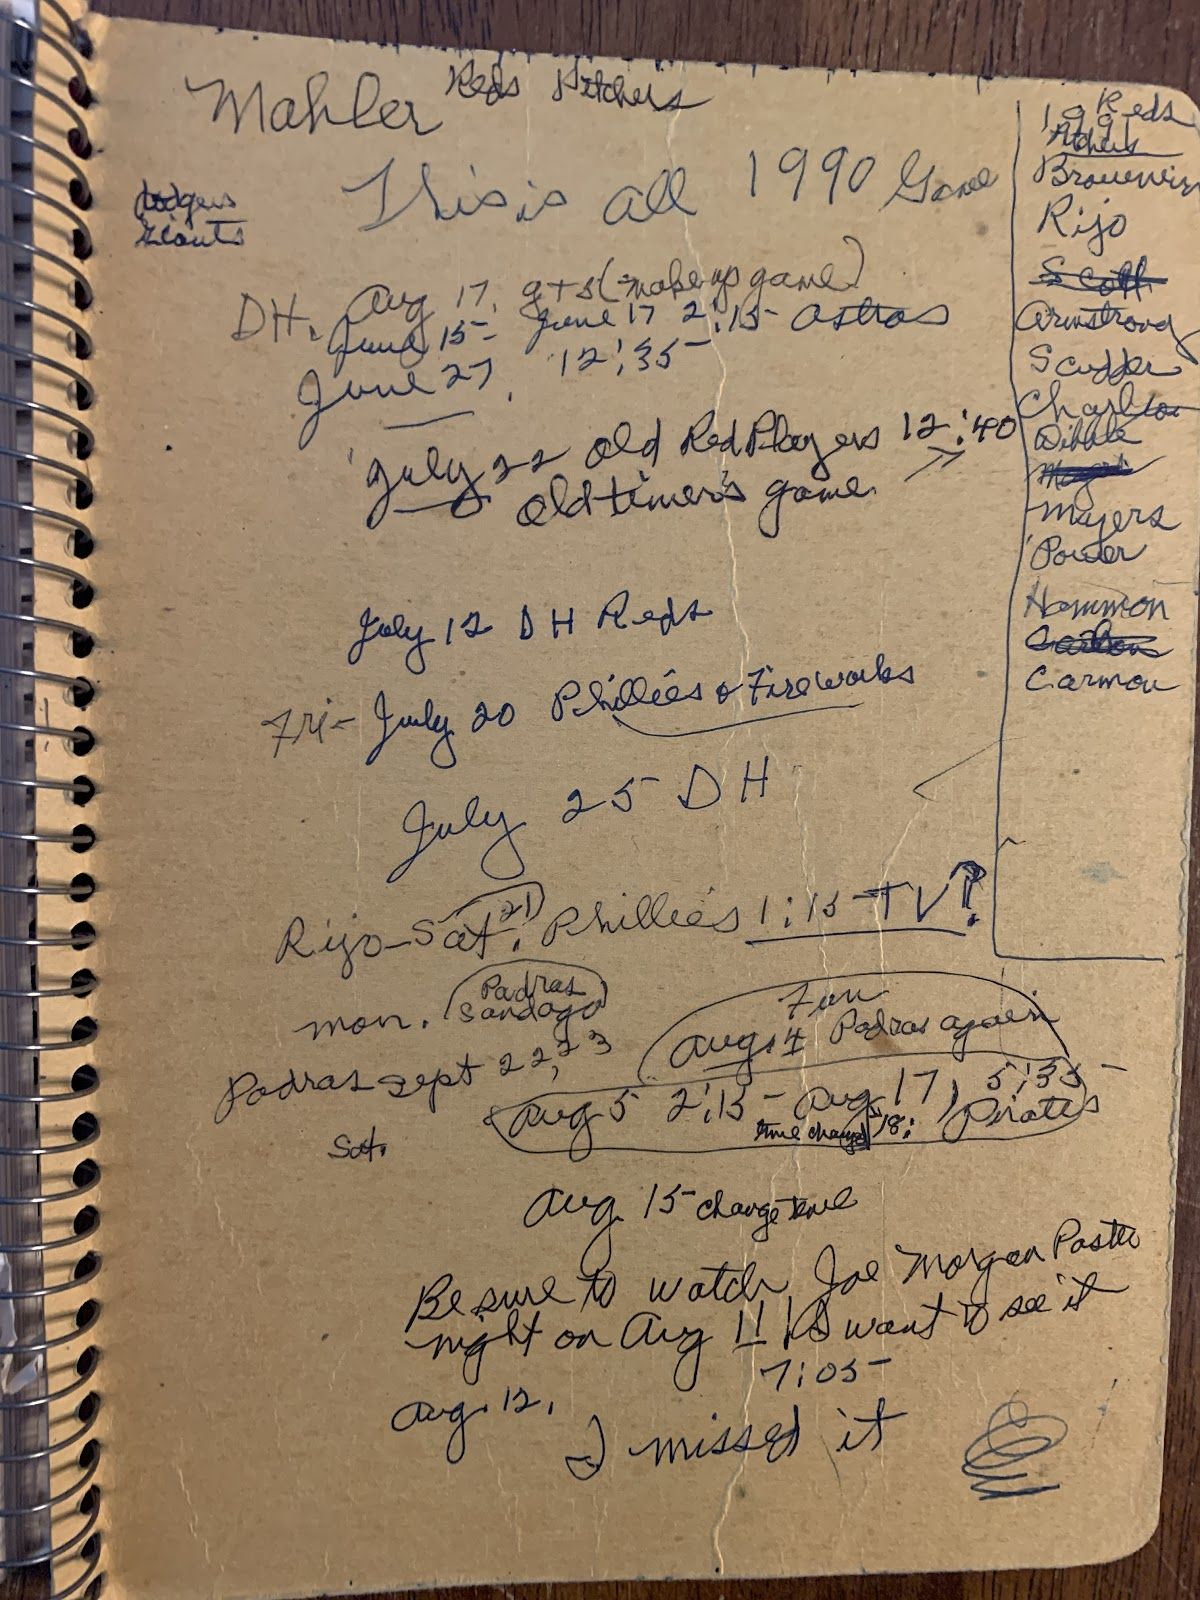 Mahler Reds Pitchers
This is all 1990 Game
Dodgers
Giants
DH. Aug 17. 9+5 (make up game)
June 15- June 17 2:15- Astros
June 27, 12:35-
July 22 Old Red Players 12:40
Old timer's game
July 12 DH Reds
Fri- July 20 Phillies & Fireworks
July 25 DH
Rijo-Sat. 21 Phillies 1:15-TV?
Mon. Padras
Sandago
Fun
Aug. 4 Padras again
Padras Sept 22, 23
Aug 5 2:15- Aug 17, 5:35-
time change 18: Pirates
Sat.
Aug 15- change time
Be sure to watch Joe Morgan Poster
night on Aug 11 want to see it
7:05-
Aug. 12,
I missed it
Reds
1991
Pitchers
Browning
Rijo
Scott
Armstrong
Scudder
Charlton
Dibble
Myers
Power
Hammon
Carmon